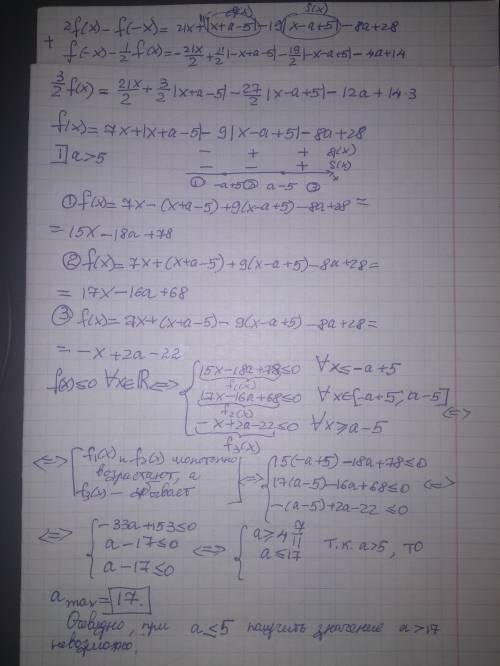 g(x) S(x)
2f(x) - f(-x) = 21x + 11|x+a-5| - 19|x-a+5| - 8a + 28
+ f(-x) - 1/2 f(x) = -21x/2 + 11/2|-x+a-5| - 19/2|-x-a+5| - 4a + 14
3/2 f(x) = 21x/2 + 3/2|x+a-5| - 27/2|x-a+5| - 12a + 14·3
f(x) = 7x + |x+a-5| - 9|x-a+5| - 8a + 28
I] a>5 - + + g(x)
- - + S(x)
① -a+5 ② a-5 ③ x
① f(x) = 7x - (x+a-5) + 9(x-a+5) - 8a + 28 =
= 15x - 18a + 78
② f(x) = 7x + (x+a-5) + 9(x-a+5) - 8a + 28 =
= 17x - 16a + 68
③ f(x) = 7x + (x+a-5) - 9(x-a+5) - 8a + 28 =
= -x + 2a - 22
f(x) ≤ 0 ∀x∈ℝ ⇔ { 15x - 18a + 78 ≤ 0 ∀x ≤ -a+5
f₁(x)
17x - 16a + 68 ≤ 0 ∀x∈[-a+5; a-5] ⇔
f₂(x)
-x + 2a - 22 ≤ 0 ∀x ≥ a-5
f₃(x)
⇔ [ f₁(x) и f₂(x) монотонно
возрастают, а
f₃(x) - убывает ] ⇔ { 15(-a+5) - 18a + 78 ≤ 0
17(a-5) - 16a + 68 ≤ 0 ⇔
-(a-5) + 2a - 22 ≤ 0
⇔ { -33a + 153 ≤ 0
a - 17 ≤ 0
a - 17 ≤ 0 ⇔ { a ≥ 4 7/11
a ≤ 17 т.к. a>5, то
a max = 17.
Очевидно, при a ≤ 5 получить значение a > 17
невозможно.